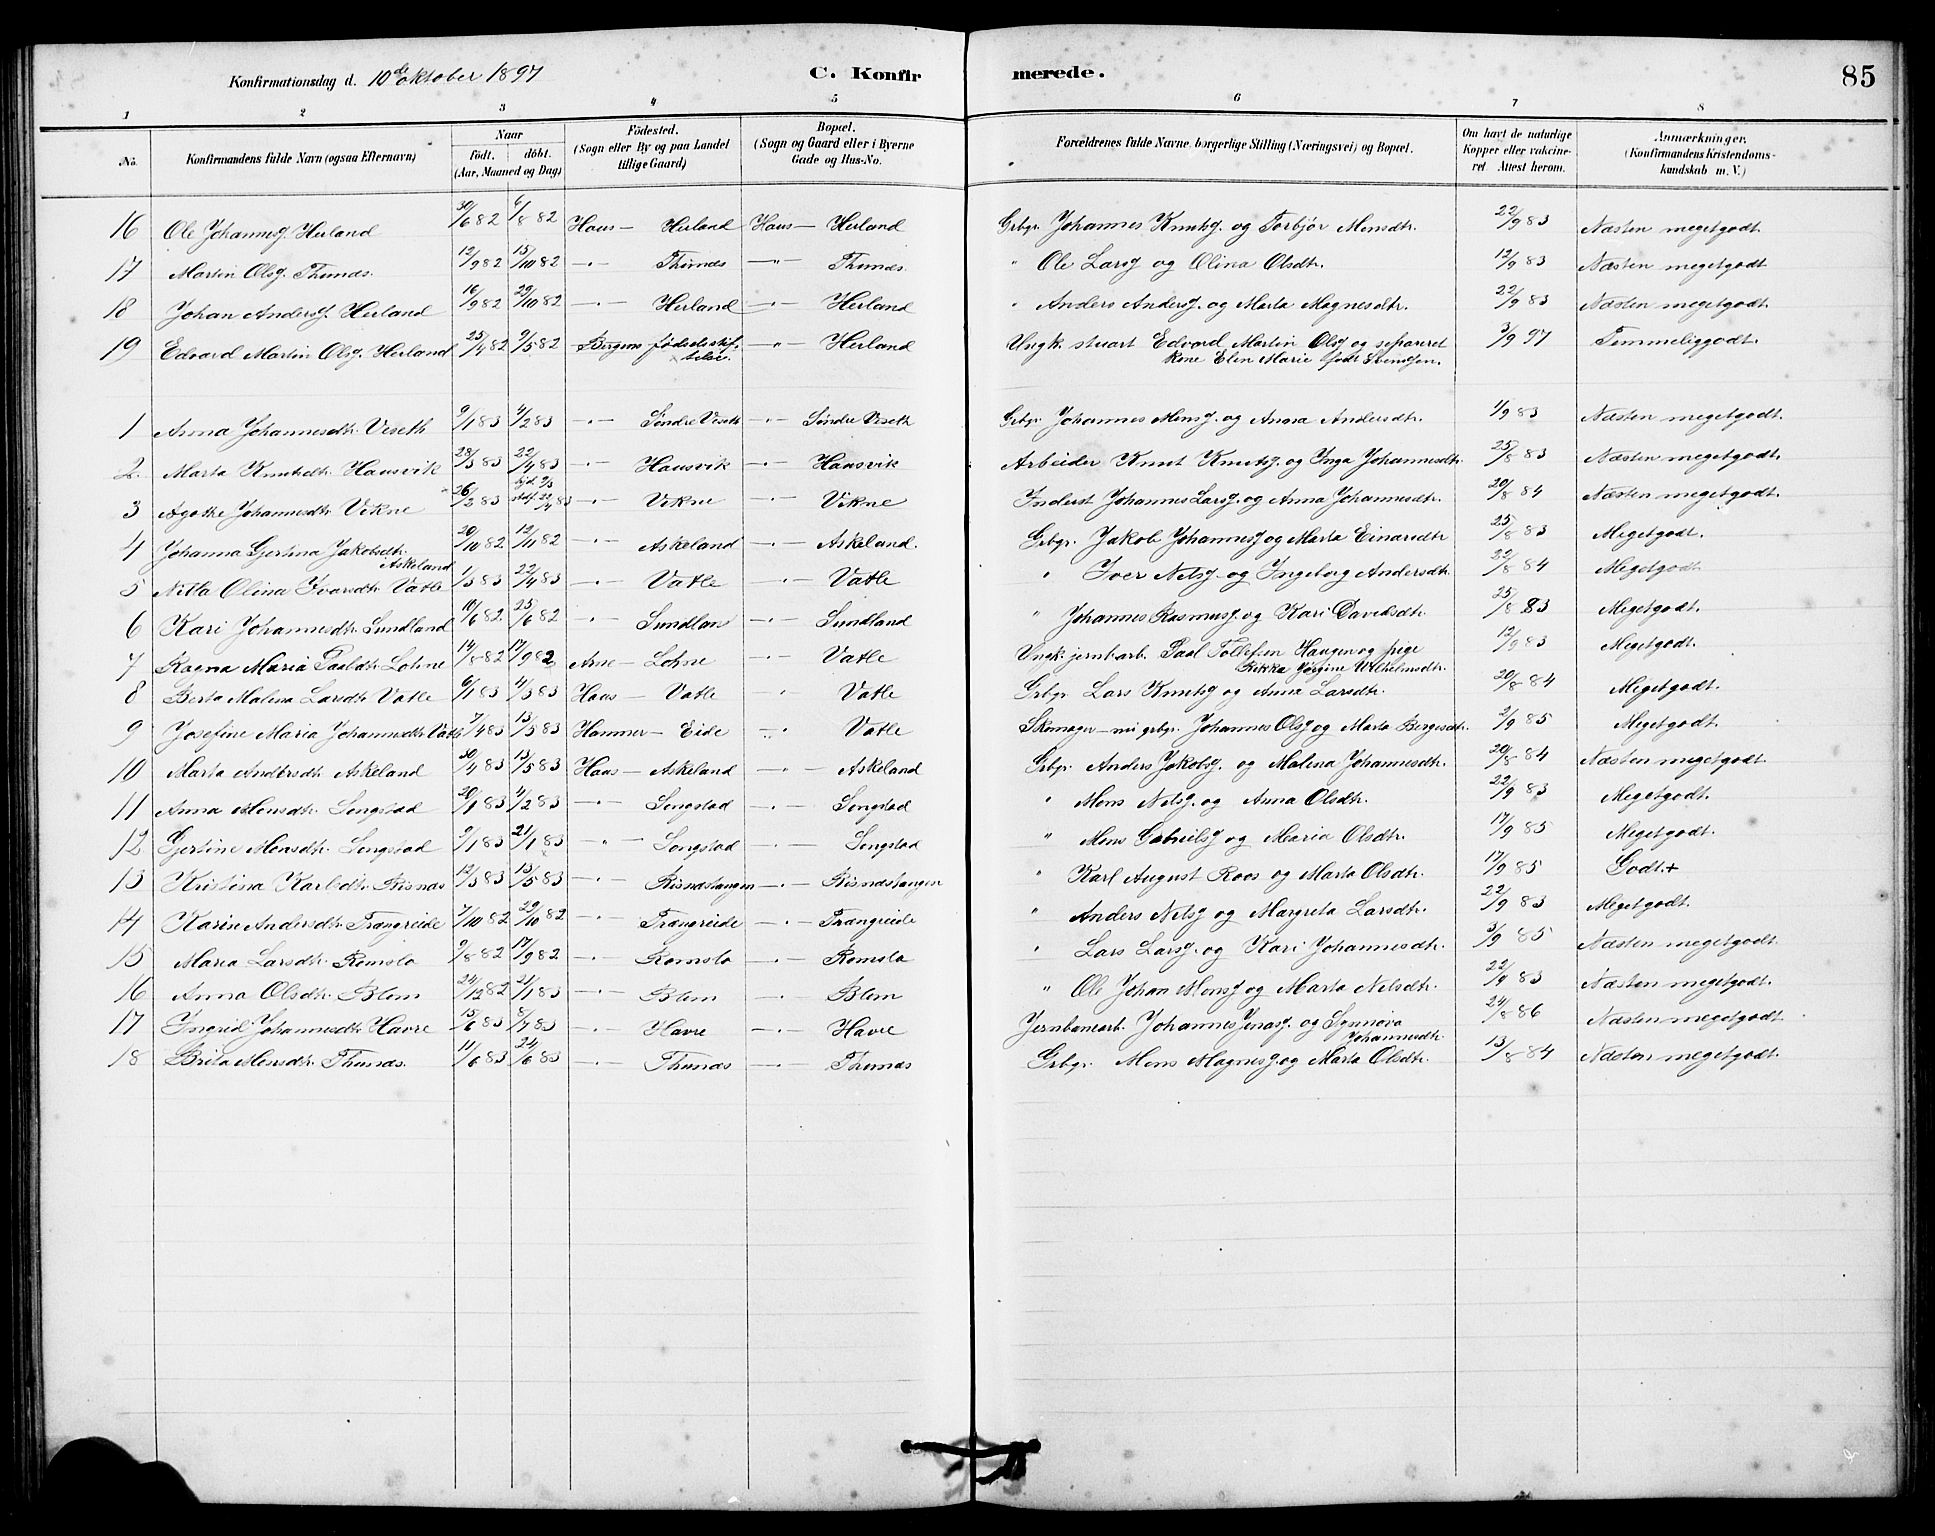 Konfirmationsdag d. 10de oktober 1897 C. Konfir merede. 85
1 2 3 4 5 6 7 8
No. Konfirmandens fulde Navn (ogsaa Efternavn) Naar født. døbt. (Aar, Maaned og Dag) Fødested. (Sogn eller By og paa Landet tillige Gaard) Bopæl. (Sogn og Gaard eller i Byerne Gade og Hus-No. Forældrenes fulde Navne, borgerlige Stilling (Næringsvei) og Bopæl. Om havt de naturlige Kopper eller vakcineret Attest herom. Anmærkninger. (Konfirmandens Kristendomskundskab m. V.)
16 Ole Johannesj. Herland 30/6 82 6/8 82 Haus — Herland Haus — Herland Grbgr. Johannes Knutsj. og Torbjør Monsdtr. 22/9 83 Næsten megetgodt.
17 Martin Olsj. Thunæs. 12/9 82 15/10 82 —"— Thunæs —"— Thunæs. " Ole Larsj og Olina Olsdtr. 12/9 83 Næsten megetgodt
18 Johan Andersj. Herland 16/9 82 29/10 82 —"— Herland —"— Herland " Anders Andersj. og Marta Magnesdtr. 22/9 83 Næsten megetgodt.
19 Edvard Martin Olsj. Herland 25/4 82 9/5 82 Bergens fødselsstiftelse. —"— Herland Ungk. stuart Edvard Martin Olsj og separeret 3/9 97 Temmeliggodt.
kone Elen Marie født Svensen.
1 Anna Johannesdtr. Viseth 9/1 83 4/2 83 —"— Søndre Viseth —"— Søndre Viseth Grbgr. Johannes Monsj. og Anna Andersdtr. 4/9 83 Næsten megetgodt.
2 Marta Knutsdtr. Hausvik 28/3 83 22/4 83 —"— Hausvik —"— Hausvik Arbeider Knut Knutsj. og Inga Johannesdtr. 25/8 83 Næsten megetgodt.
3 Agothe Johannesdtr. Vikne 26/2 83 hjd. 2/3 stdf. 22/4 83 —"— Vikne —"— Vikne Inderst Johannes Larsj. og Anna Johannesdtr. 20/8 84 Næsten megetgodt.
4 Johanna Gjertina Jakobsdtr. Askeland 20/10 82 12/11 82 —"— Askeland —"— Askeland. Grbgr. Jakob Johannesj og Marta Einarsdtr 25/8 83 Megetgodt.
5 Nilla Olina Ivarsdtr. Vatle 1/3 83 22/4 83 —"— Vatle —"— Vatle " Iver Nilsj. og Ingeborg Andersdtr. 22/8 84 Megetgodt
6 Kari Johannesdtr. Sundland 10/6 82 25/6 82 —"— Sundlan —"— Sundland " Johannes Rasmusj. og Kari Davidsdtr. 25/8 83 Megetgodt.
7 Ragna Maria Paalsdtr. Lohne 14/8 82 17/9 82 Arne — Lohne —"— Vatle Ungk. jernb.arb. Paal Tollefsen Haugen og pige 12/9 83 Megetgodt.
Rikka Jørgine Wilhelmsdtr.
8 Berta Malena Larsdtr. Vatle 6/1 83 4/3 83 Haus — Vatle " Vatle Grbgr. Lars Knutsj og Anna Larsdtr. 20/8 84 Megetgodt.
9 Josefine Maria Johannesdtr. Vatle 7/4 83 13/5 83 Hammer — Eide —"— Vatle Skomager — nu grbgr. Johannes Olsj og Marta Børgesdtr. 2/9 85 Megetgodt.
10 Marta Andersdtr. Askeland 30/4 83 13/5 83 Haus — Askeland —"— Askeland Grbgr. Anders Jakobsj. og Malena Johannesdtr. 20/8 84 Næsten megetgodt.
11 Anna Monsdtr. Songstad 20/1 83 4/2 83 —"— Songstad —"— Songstad " Mons Nilsj. og Anna Olsdtr. 22/9 83 Megetgodt.
12 Gjertine Monsdtr. Songstad 9/1 83 21/1 83 —"— Songstad —"— Songstad " Mons Gabrielsj og Maria Olsdtr. 17/9 85 Megetgodt.
13 Kristina Karlsdtr. Risnæs 12/3 83 13/5 83 —"— Risnæstangen —"— Risnæstangen " Karl August Roos og Marta Olsdtr. 17/9 85 Godt.+
14 Karin Andersdtr. Trangreide 7/10 82 29/10 82 —"— Trangreide —"— Trangreide " Anders Nilsj og Margreta Larsdtr. 22/9 83 Megetgodt.
15 Maria Larsdtr. Romslo 9/8 82 17/9 82 —"— Romslo —"— Romslo " Lars Larsj. og Kari Johannesdtr. 3/9 85 Næsten megetgodt.
16 Anna Olsdtr. Blom 24/12 82 21/1 83 —"— Blom —"— Blom " Ole Johan Monsj og Marta Nilsdtr. 22/9 83 Næsten megetgodt.
17 Ingrid Johannesdtr. Havre 15/6 83 8/7 83 —"— Havre —"— Havre Jernbanearb. Johannes Jonasj. og Synnøva Johannesdtr. 24/8 86 Næsten megetgodt
18 Brita Monsdtr. Thunæs. 11/6 83 24/6 83 —"— Thunæs —"— Thunæs Grbgr. Mons Magnesj og Marta Olsdtr. 13/8 84 Næsten megetgodt.